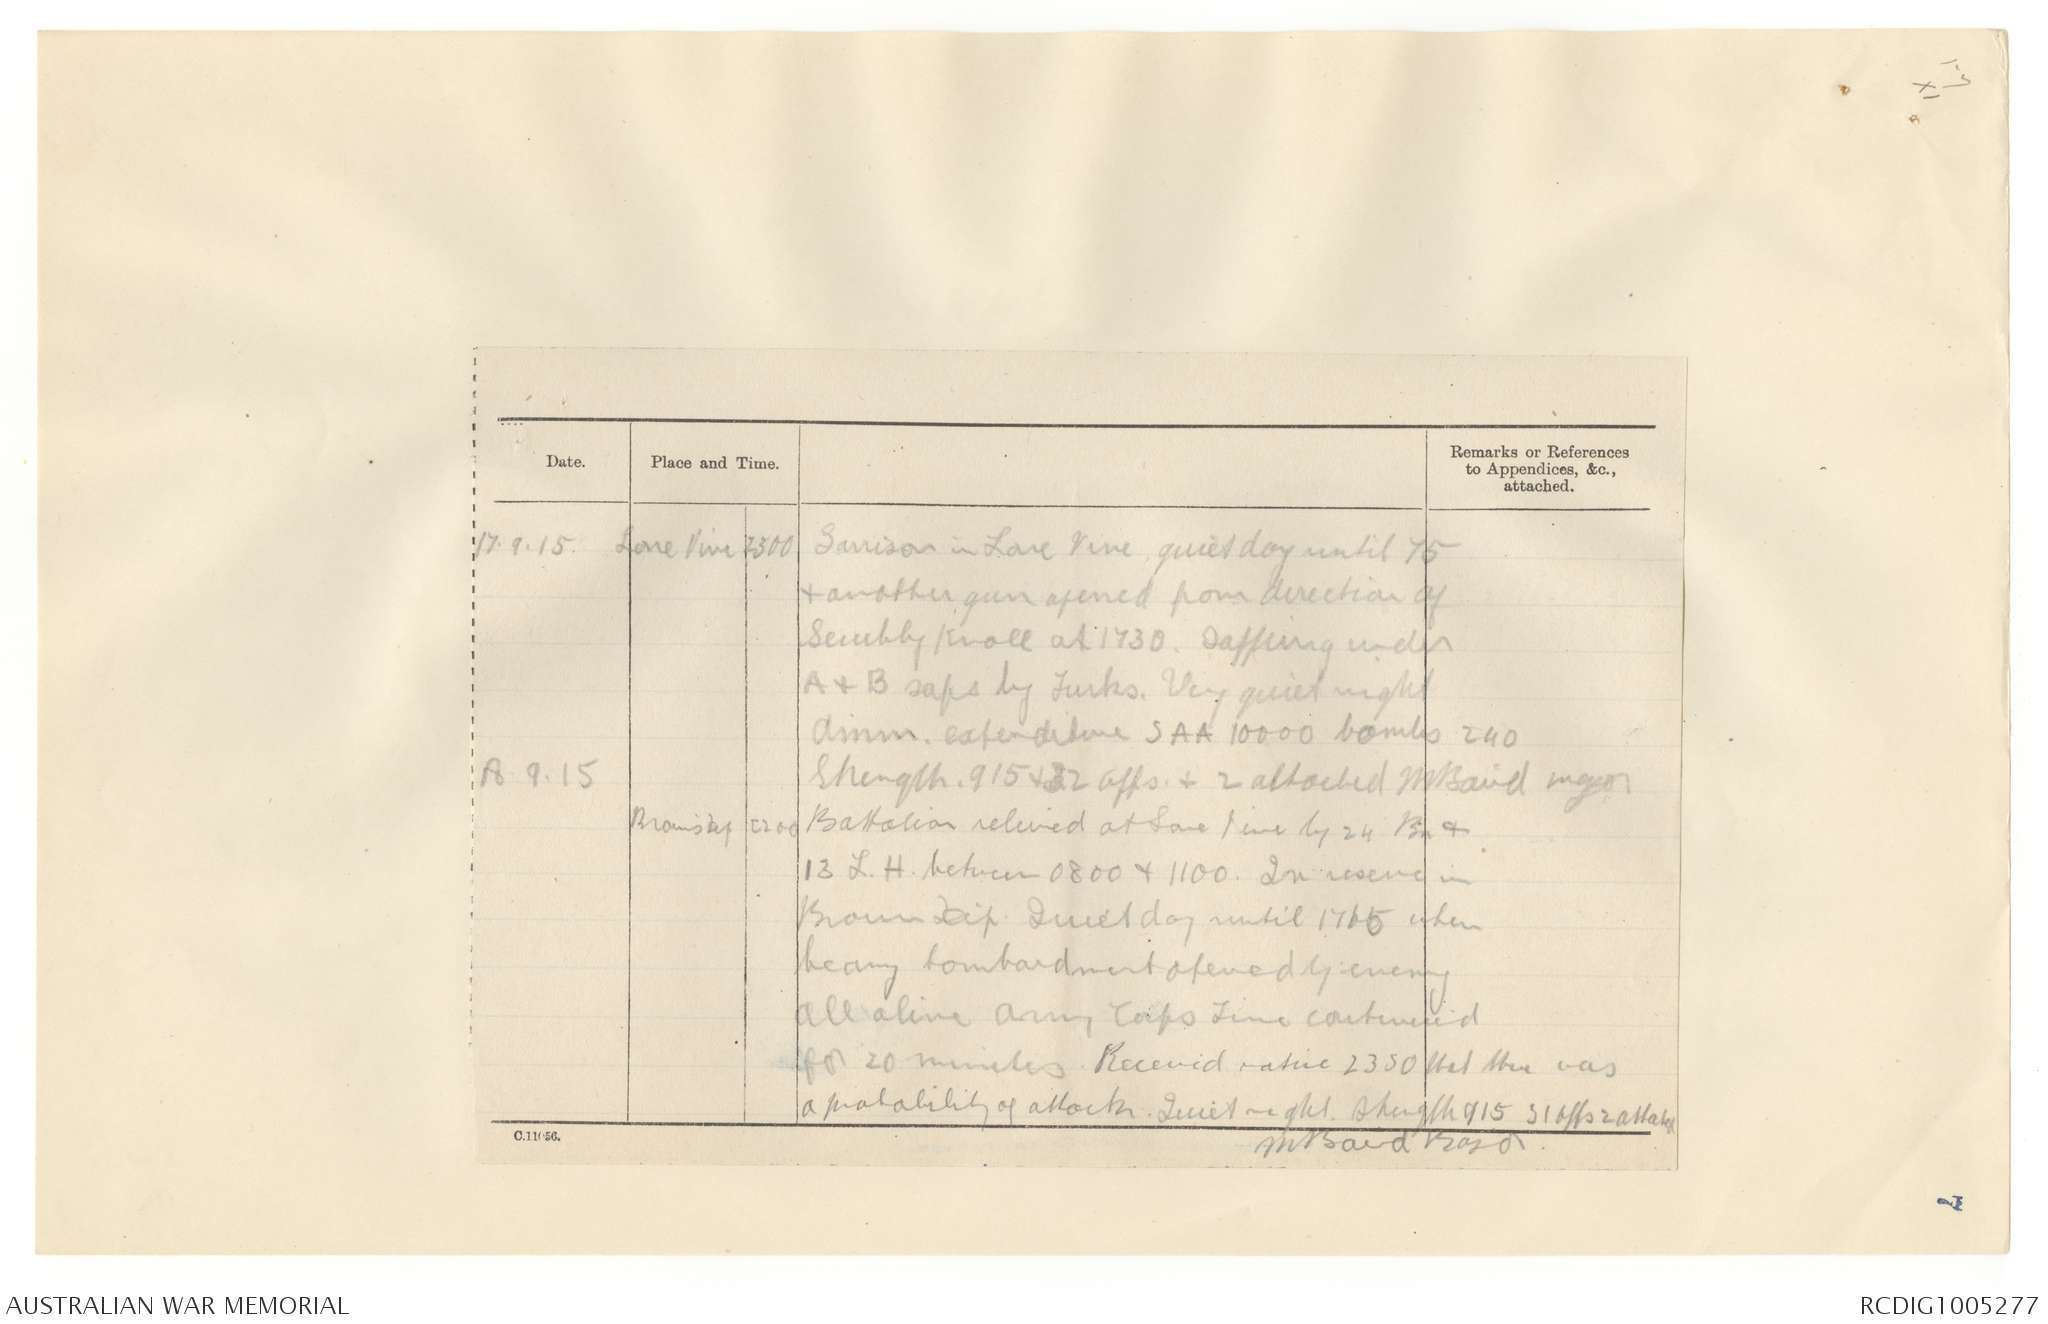 Date.
Place and Time.
Remarks or References
to Appendices, &c.,
attached.
17.9.15. Lone Pine 2300 Garrison in Lone Pine, quiet day until 75
+ another gun opened from direction of
Scrubby Knoll at 1730. Sapping under
A + B saps by Turks. Very quiet night
Amm. expenditure SAA 10000 bombs 240
18.9.15 Strength. 915 + 32 offs. + 2 attached MBaird major
Browns Dip 2200 Battalion relieved at Lone Pine by 24 Bn +
13 L.H. between 0800 + 1100. In reserve in
Brown Dip. Quiet day until when
heavy bombardment opened by enemy
all aline Army Corps Line continued
for 20 minutes. Received notice 2330 that there was
a probability of attack. Quiet night. Strength 915 31 offs 2 attached
MBaird Major.
C.11056.
AUSTRALIAN WAR MEMORIAL
RCDIG1005277